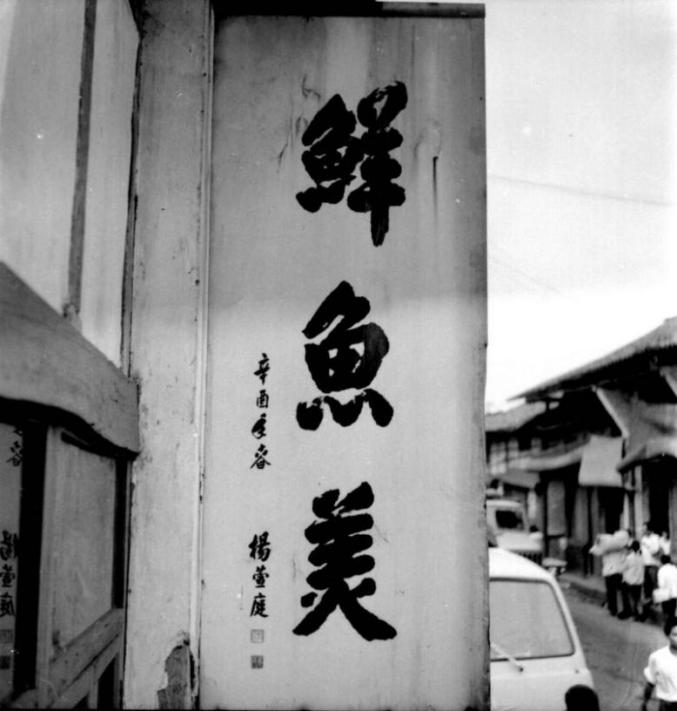 鮮魚美
辛酉年春 楊萱庭